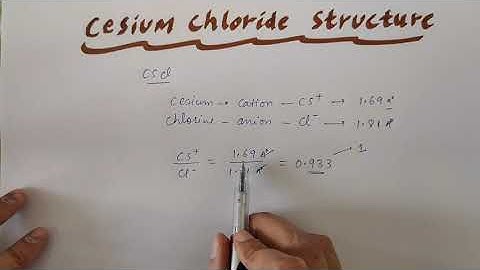 Cesium Chloride Structure
CsCl
Cesium → cation – Cs⁺ → 1.69 A°
Chlorine – anion – Cl⁻ → 1.81 A°
Cs⁺/Cl⁻ = 1.69 A°/1.81 A° = 0.933 → 1